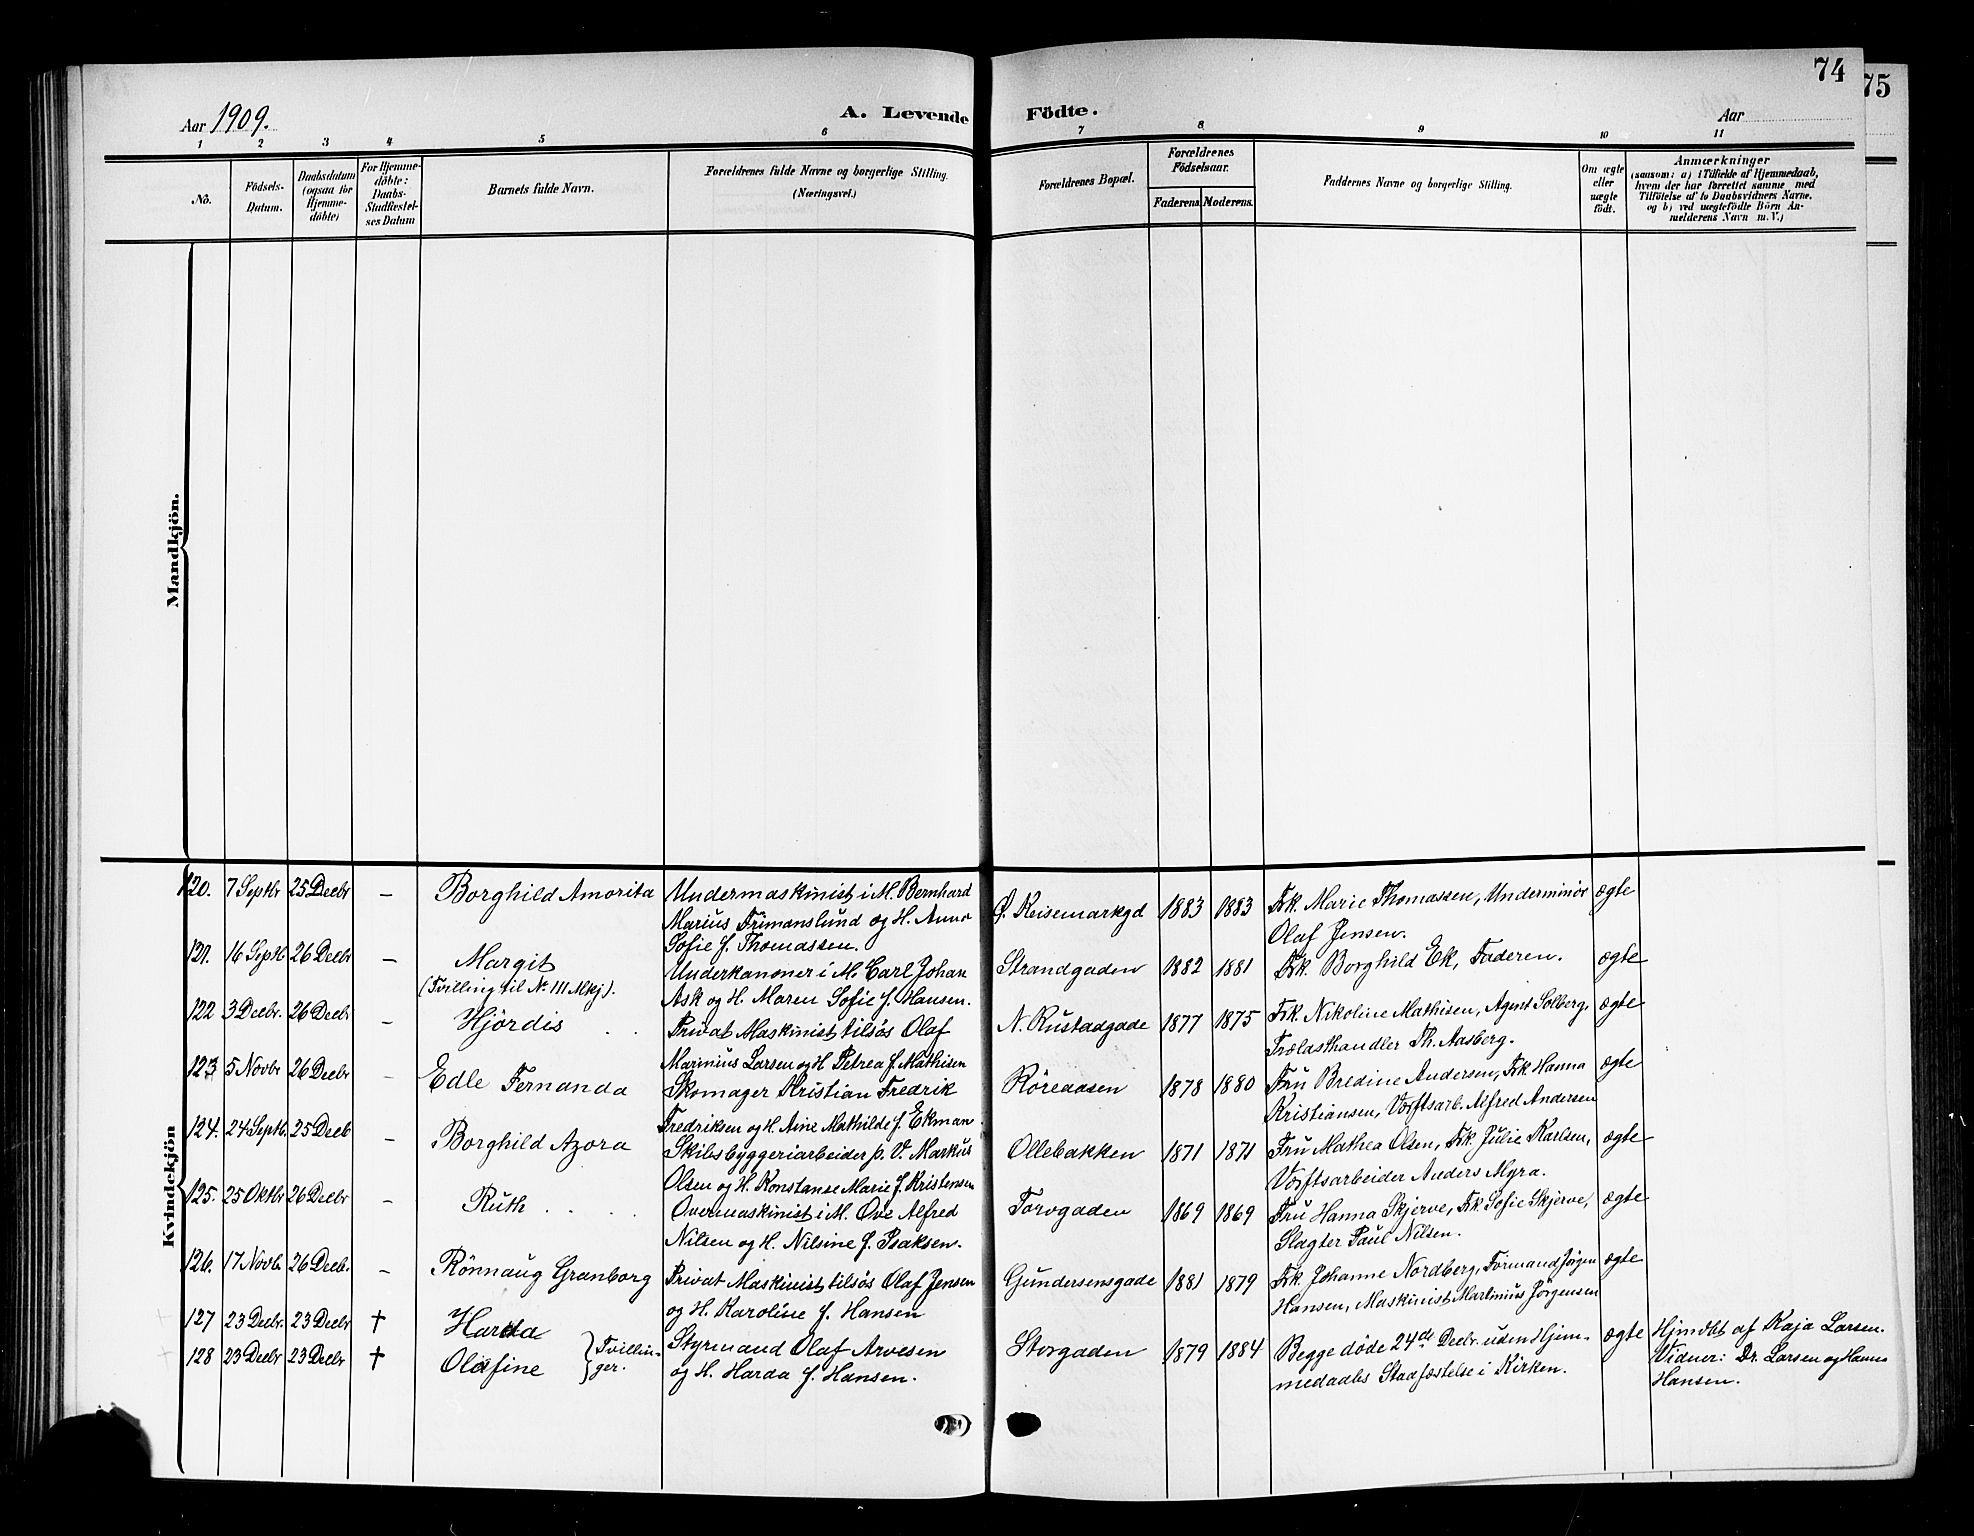 74
75
Aar 1909.
A. Levende Födte.
Aar
1 2 3 4 5 6 7 8 9 10 11
No.
Födsels-
Datum.
Daabsdatum
(ogsaa for
Hjemme-
döbte)
For Hjemme-
döbte:
Daabs-
Stadfæstel-
ses Datum
Barnets fulde Navn.
Forældrenes fulde Navne og borgerlige Stilling.
(Næringsvei.)
Forældrenes Bopæl.
Forældrenes
Födselsaar.
Faderens. Moderens.
Faddernes Navne og borgerlige Stilling.
Om ægte
eller
uægte
født.
Anmærkninger
(saasom: a) i Tilfælde af Hjemmedaab,
hvem der har forrettet samme, med
Tilföielse af to Daabsvidners Navne,
og b) ved uægtefödte Börn An-
melderens Navn m. V.)
Mandkjön.
Kvindekjön
120. 7 Septbr 25 Decbr – Borghild Amorita
Undermaskinist i M. Bernhard
Marius Frimanslund og H. Anna
Sofie f. Thomassen.
Ø. Keisemarkgd 1883 1883
Frk. Marie Thomassen, Underminör
Olaf Jensen.
ægte
121. 16 Septb 26 Decbr – Margit
(Tvilling til No 111 Mkj).
Underkanoner i M. Carl Johan
Ask og H. Maren Sofie f. Hansen.
Strandgaden 1882 1881
Frk. Borghild Ek, Faderen.
ægte
122 3 Decbr. 26 Decbr – Hjördis
Privat Maskinist tilsös Olaf
Marinius Larsen og H. Petrea f. Mathisen
N. Rustadgade 1877 1875
Frk. Nikoline Mathisen, Agent Solberg,
Trælasthandler Th. Aasberg.
ægte
123 5 Novbr 26 Decbr – Edle Fernanda
Skomager Kristian Fredrik
Fredriksen og H. Aine Mathilde f. Ekman.
Röreaasen 1878 1880
Fru Bredine Andersen, Frk. Hanna
Kristiansen, Værftsarb. Alfred Andersen
ægte
124. 24 Septb. 25 Decb – Borghild Azora
Skibsbyggeriarbeider p. V. Markus
Olsen og H. Konstanse Marie f. Kristensen
Ollebakken 1871 1871
Fru Mathea Olsen, Frk. Julie Karlsen,
Værftsarbeider Anders Myra.
ægte
125. 25 Oktbr 26 Decbr – Ruth
Overmaskinist i M. Ove Alfred
Nilsen og H. Nilsine f. Isaksen.
Torvgaden 1869 1869
Fru Hanna Skjerve, Frk. Sofie Skjerve,
Slagter Paul Nilsen.
ægte
126. 17 Novb. 26 Decb. – Rönnaug Granborg
Privat Maskinist tilsös Olaf Jensen
og H. Karoline f. Hansen
Gundersensgade 1881 1879
Frk. Johanne Nordberg, Formand Jörgen
Hansen, Maskinist Martinius Jörgensen
ægte
127 23 Decbr. 23 Decbr † Harda
128 23 Decbr 23 Decbr † Olafine
Tvillin-
ger.
Styrmand Olaf Arvesen
og H. Harda f. Hansen.
Storgaden 1879 1884
Begge döde 24de Decbr. uden Hjem-
medaabs Stadfæstelse i Kirken.
ægte
Hjmdbt af Kaja Larsen.
Vidner: Dr. Larsen og Hanna
Hansen.